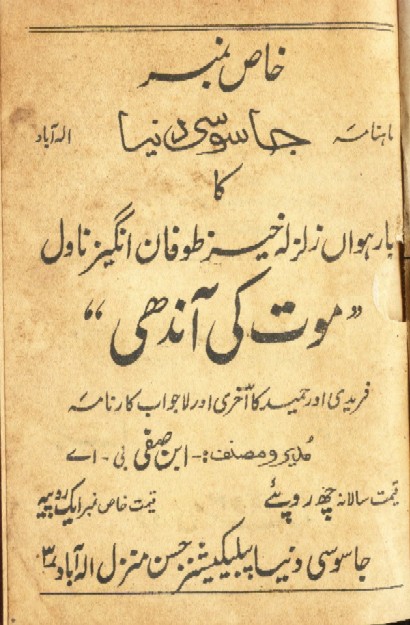 خاص نمبر
ماہنامہ جاسوسی دنیا الہ آباد
کا
بارہواں زلزلہ خیز طوفان انگیز ناول
”موت کی آندھی“
فریدی اور حمید کا آخری اور لاجواب کارنامہ
مُدیر و مصنف:- ابن صفی بی - اے
قیمت سالانہ چھ روپئے قیمت خاص نمبر ایک روپیہ
جاسوسی دنیا پبلیکیشنز حسن منزل الہ آباد ۳